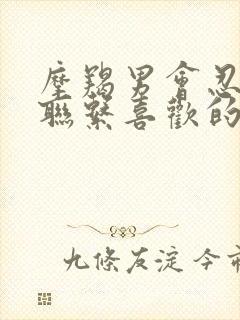 摩羯男會忍
聯繫喜歡的
九條友淀今市